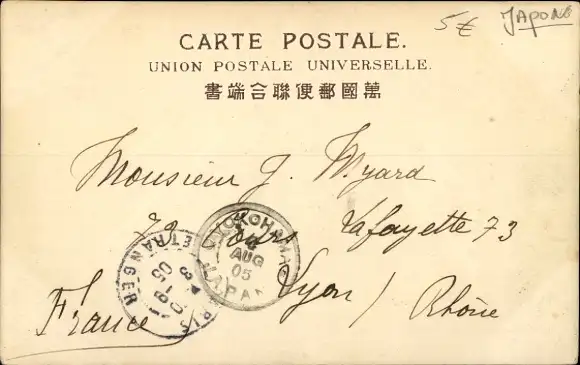 5€ JAPON
CARTE POSTALE.
UNION POSTALE UNIVERSELLE.
書端合聯便郵國萬
Monsieur J. Myard
73 Cours Lafayette 73
Lyon / Rhône
France
YOKOHAMA
AUG
05
JAPAN
PARIS
ETRANGER